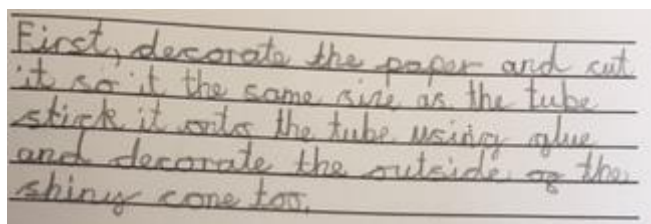 First, decorate the paper and cut
it so it the same size as the tube
stick it onto the tube using glue
and decorate the outside of the
shiny cone too.